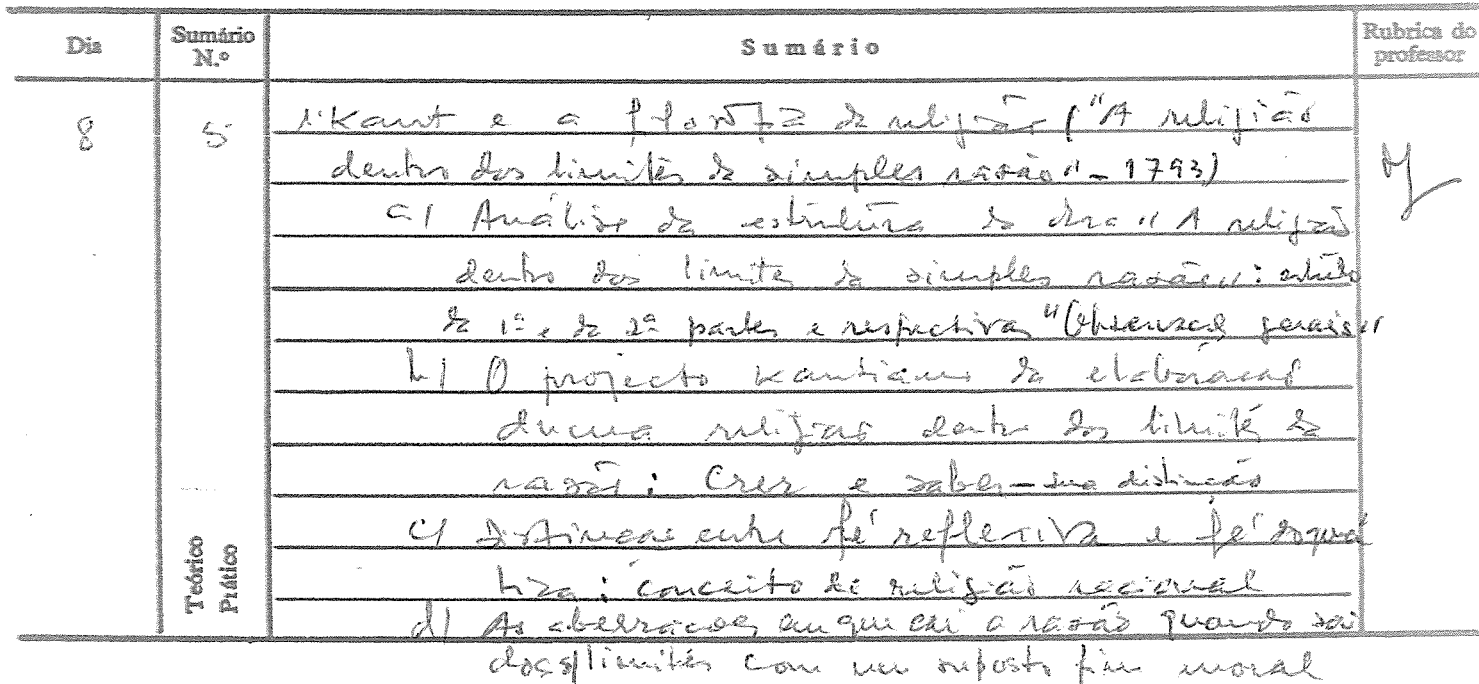 Dia Sumário N.º Sumário Rubrica do professor
8 5 1. Kant e a da religião ("A religião
dentro dos limites da simples razão" - 1793)
a) Análise da estrutura da obra "A religião
dentro dos limites da simples razão": estudo
da 1ª e da 2ª partes e respectivas "Observações gerais"
b) O projecto kantiano da elaboração
duma religião dentro dos limites da
razão: Crer e saber - sua distinção
c) Distinção entre fé reflexiva e fé dogmá
tica: conceito de religião racional
d) As aberrações em que cai a razão quando sai
dos s/ limites com um suposto fim moral
Teórico
Prático